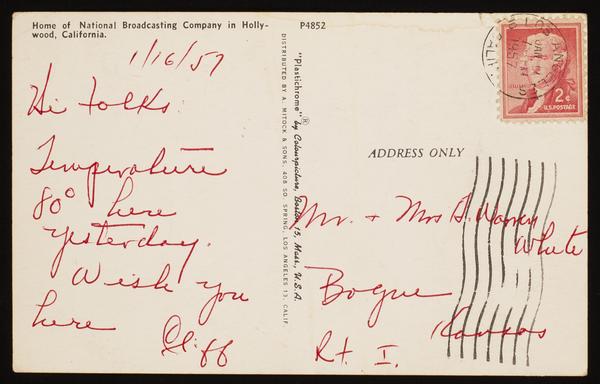 Home of National Broadcasting Company in Holly-
wood, California.
P4852
1/16/57
Hi Folks:
Temperature
80° here
yesterday.
Wish you
here
Cliff
DISTRIBUTED BY A. MITOCK & SONS, 408 SO. SPRING, LOS ANGELES 13, CALIF.
"Plastichrome"® by Colourpicture, Boston 15, Mass., U.S.A.
LOS ANGELES
CALIF.
JAN
1957
2¢
U.S. POSTAGE
ADDRESS ONLY
Mr. + Mrs
White
Bogue
Kansas
Rt. I.